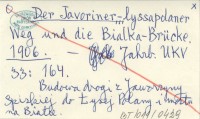 Der Javoriner... Lyssapolaner
Weg und die Bialka-Brücke.
1906. — Jahrb. UKV
33: 164.
Budowa drogi z Jaworzyny
Spiskiej do Łysej Polany i mostu
na Białce.